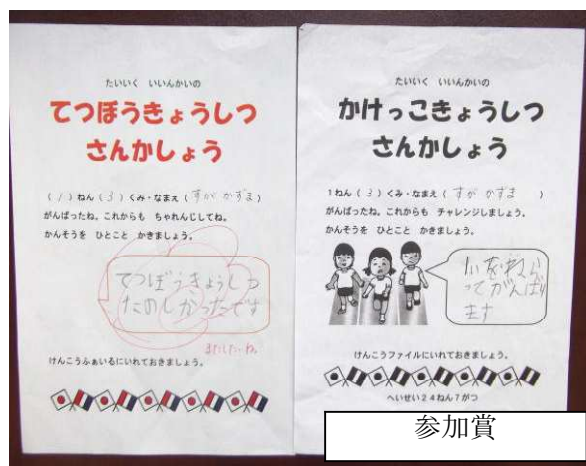 たいいく いいんかいの
てつぼうきょうしつ
さんかしょう
( 1 ) ねん ( 3 ) くみ・なまえ ( すが かずま )
がんばったね。これからも ちゃれんじしてね。
かんそうを ひとこと かきましょう。
てつぼうきょうしつ
たのしかったです
またしたいね。
けんこうふぁいるにいれておきましょう。
たいいく いいんかいの
かけっこきょうしつ
さんかしょう
1ねん ( 3 ) くみ・なまえ ( すが かずま )
がんばったね。これからも チャレンジしましょう。
かんそうを ひとこと かきましょう。
いをねら
ってがんばり
ます
けんこうファイルにいれておきましょう。
へいせい24ねん7がつ
参加賞